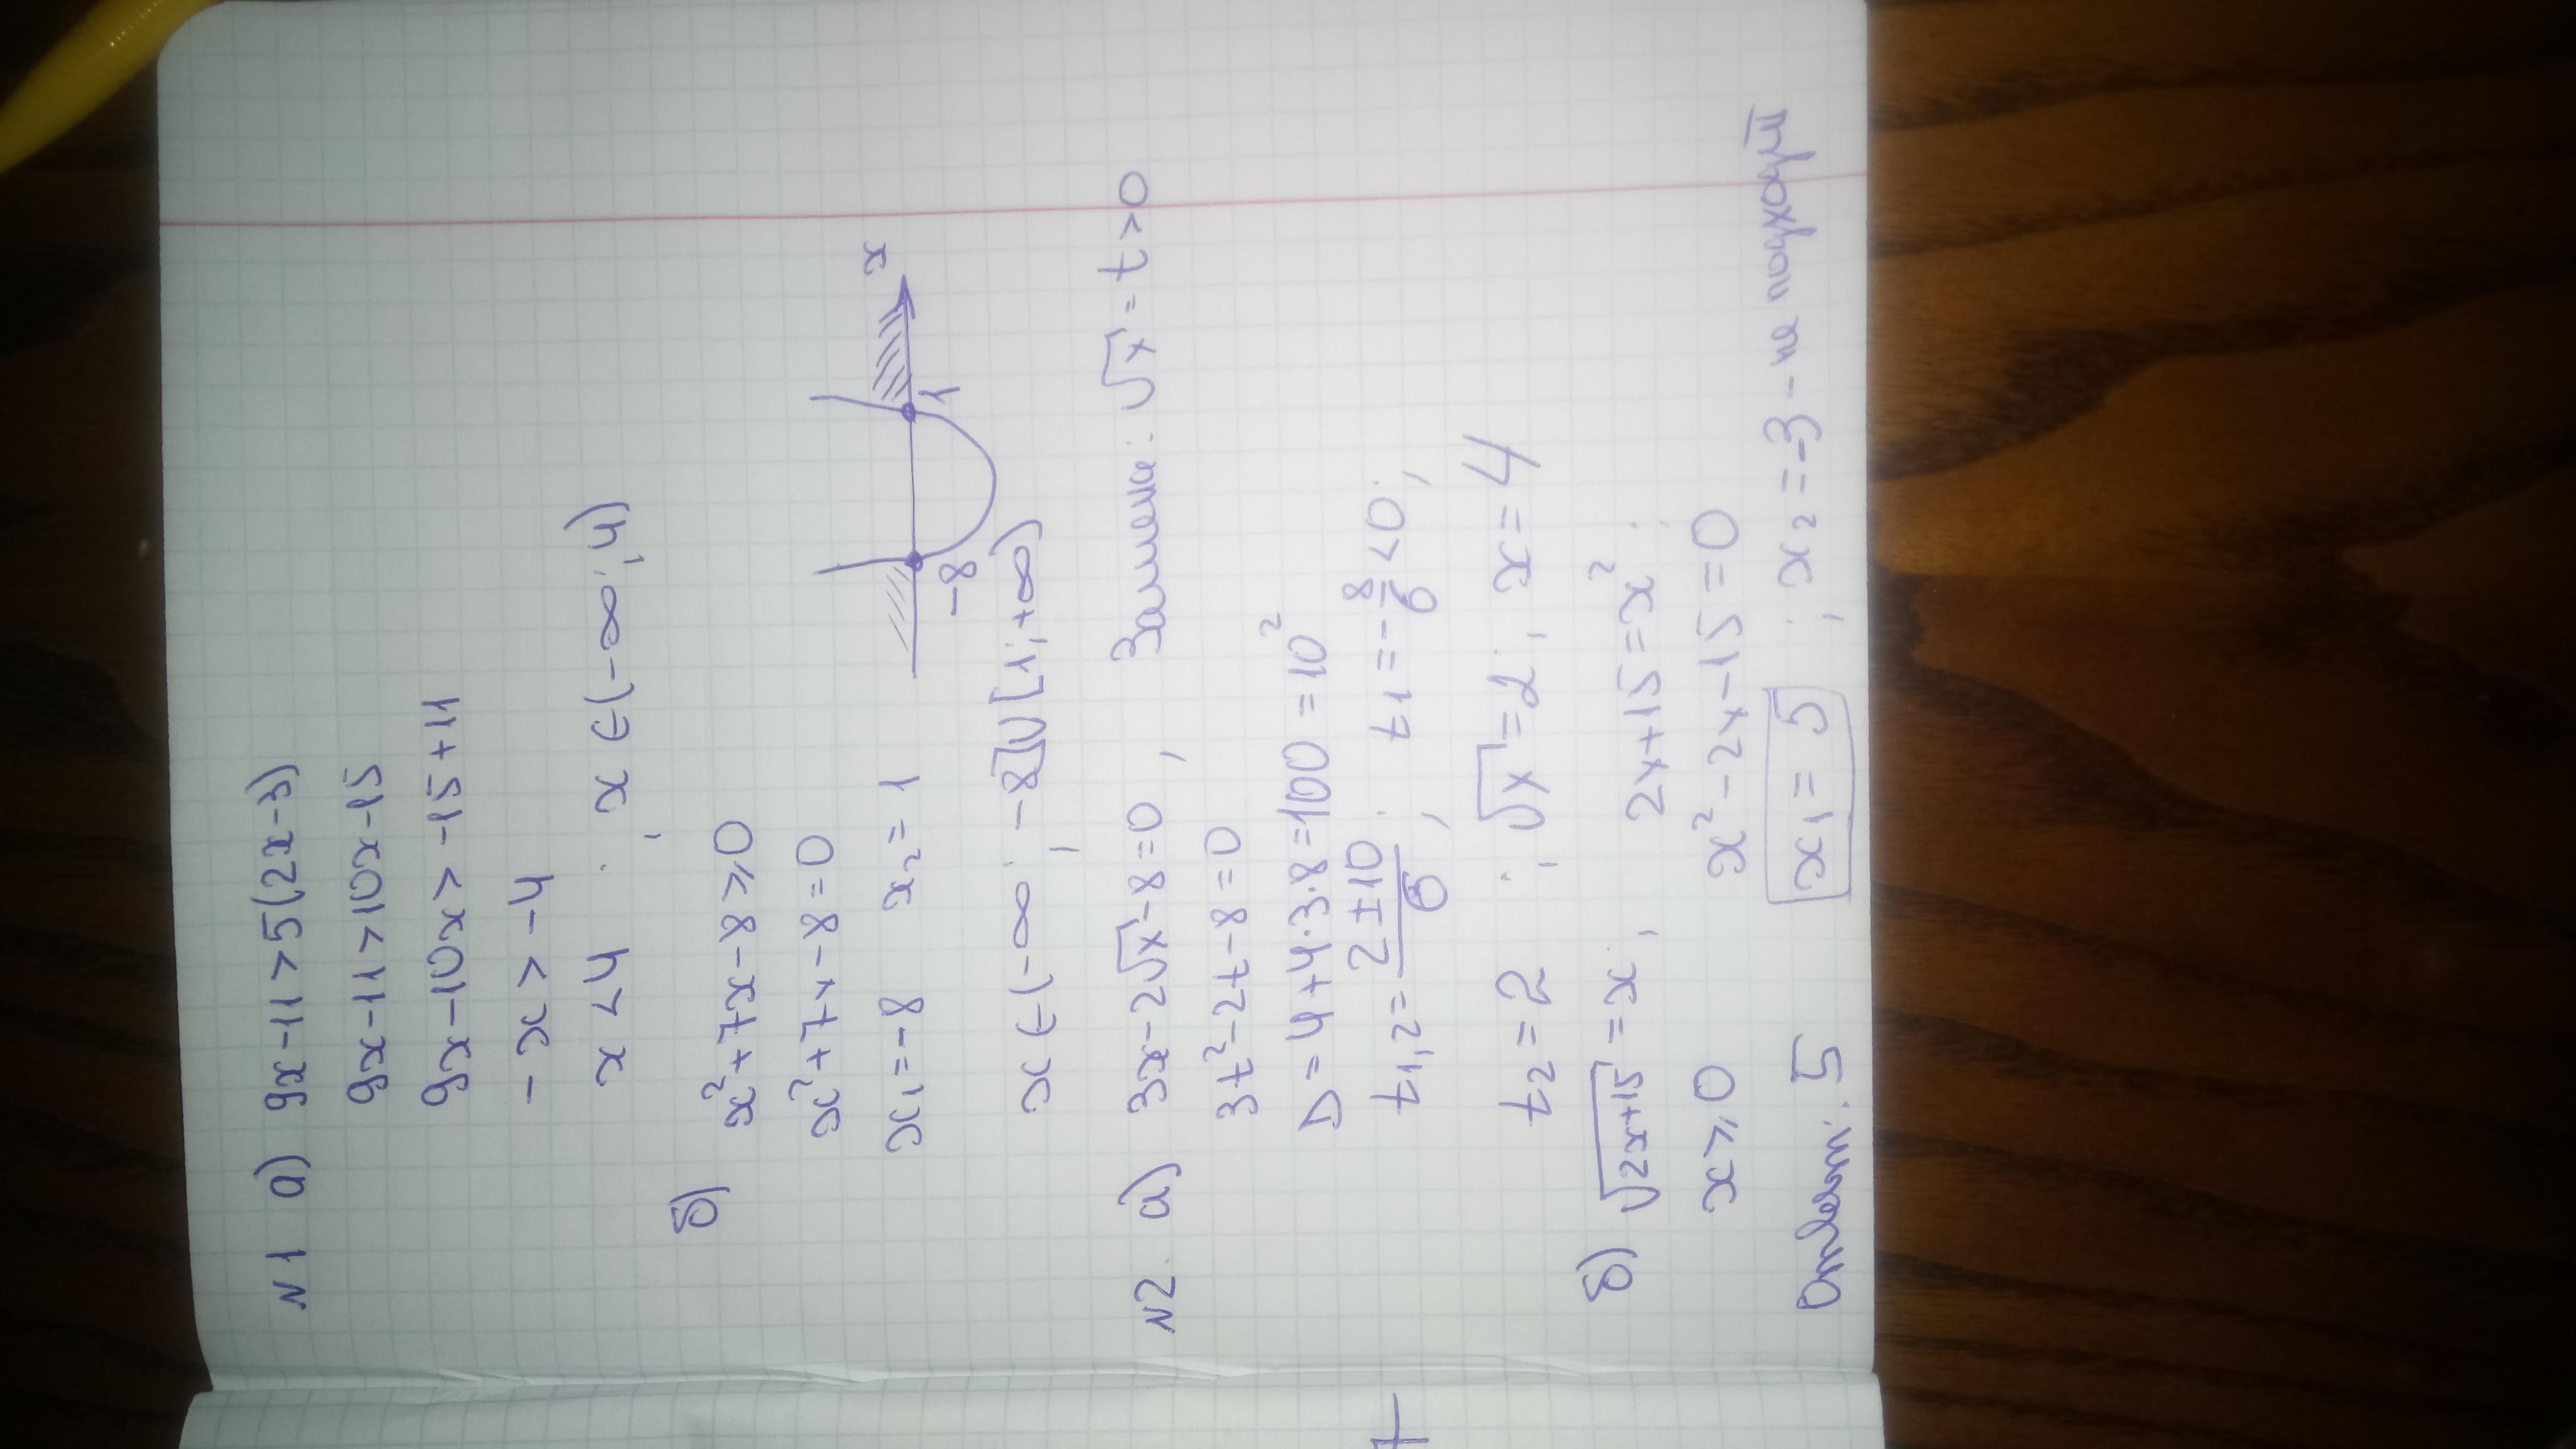 N1 а) 9x-11>5(2x-3)
9x-11>10x-15
9x-10x>-15+11
-x>-4
x<4 ; x∈(-∞;4)
б) x²+7x-8⩾0
x²+7x-8=0
x₁=-8 x₂=1
-8 1 x
x∈(-∞;-8]∪[1;+∞)
N2. а) 3x-2√x-8=0; Замена: √x=t>0
3t²-2t-8=0
D=4+4·3·8=100=10²
t₁,₂=(2±10)/6; t₁=-8/6<0;
t₂=2; √x=2; x=4
б) √(2x+15)=x; 2x+15=x²;
x⩾0 x²-2x-15=0
Ответ: 5 x₁=5; x₂=-3-не подходит